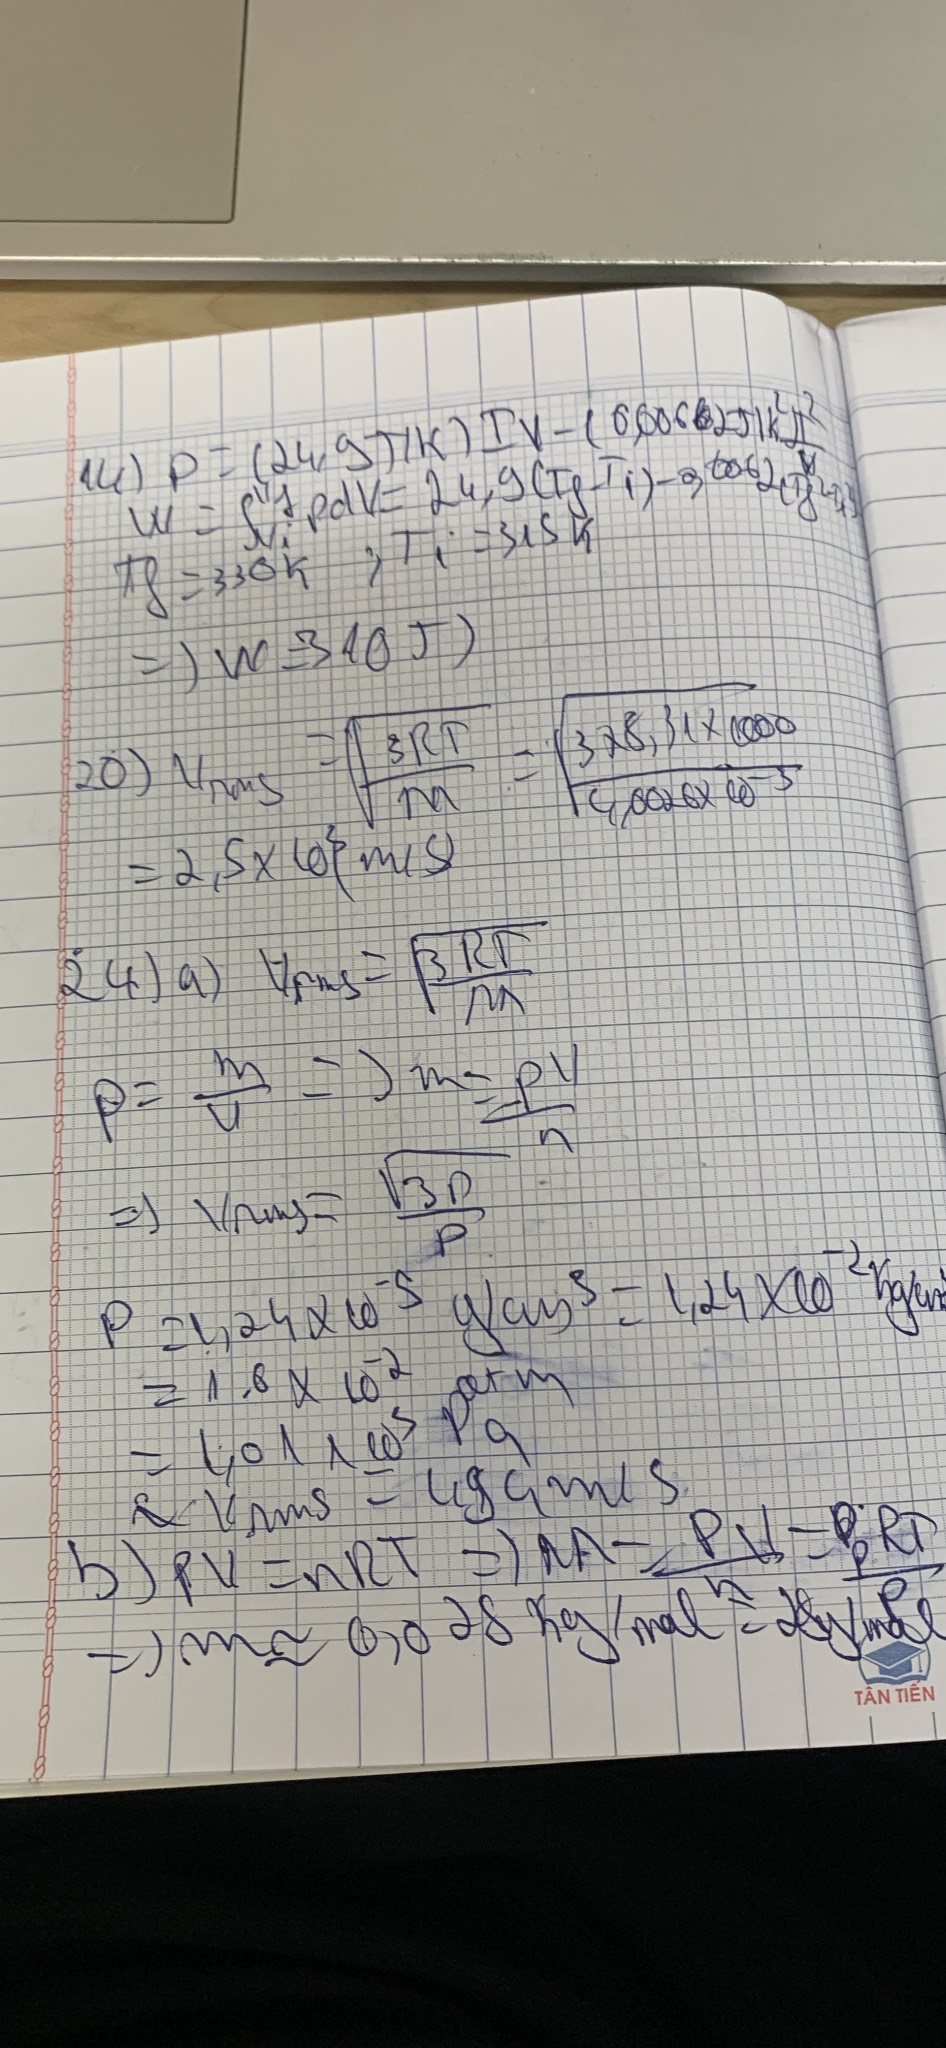 14) P = (24,9 J/K) T/V - (0,00662 J/K²) T²/V
W = ∫ᵥᵢᵛᶠ pdV = 24,9 (Tf - Ti) - 0,00662 (Tf² - Ti²)
Tf = 330K , Ti = 315K
=) W = 310 J)
20) Vrms = √(3RT/M) = √(3 x 8,31 x 1000 / 4,0026 x 10⁻³)
= 2,5 x 10³ m/s
24) a) Vrms = √(3RT/M)
ρ = m/V =) m = ρV/n
=) Vrms = √3P/ρ
ρ = 1,24 x 10⁻⁵ g/cm³ = 1,24 x 10⁻² kg/m³
= 1.0 x 10⁻² atm
= 1,01 x 10⁵ Pa
Vrms = 494 m/s
b) PV = nRT =) M = ρV/n = ρRT/P
=) m ≈ 0,028 kg/mol = 28g/mol
TÂN TIẾN